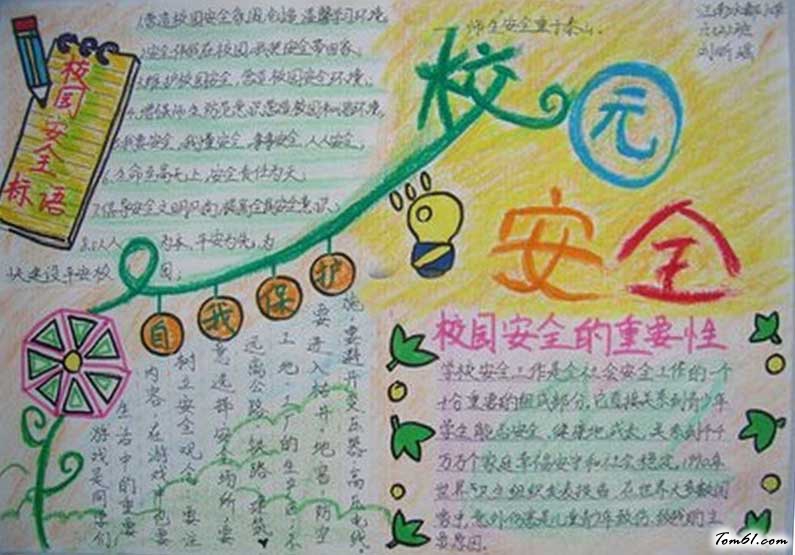 校园安全标语
1.营造校园安全氛围,创造温馨学习环境。
2.安全伴我在校园,我把安全带回家。
3.维护校园安全,营造校园安全环境。
4.增强师生防范意识,营造校园和谐环境。
5.我要安全,我懂安全,事事安全,人人安全。
6.生命至高无上,安全责任为天。
7.倡导安全文明风尚,提高全员安全意识。
为本,平安为先,为
快建设平安校园。
师生安全重于泰山。
校元
安全
自我保护
施,要避开变压器、高压电线,
要进入枯井、地窖、防空
工地、工厂的生产区,不
远离公路、铁路、建筑
意选择安全场所,要
树立安全观念,要注
内容,在游戏中也要
生活中的重要
游戏是同学们
校园安全的重要性
学校安全工作是全社会安全工作的一个
十分重要的组成部分。它直接关系到青少年
学生能否安全、健康地成长,关系到千千
万万个家庭幸福安宁和社会稳定。
世界卫生组织发表报告:在世界大多数国
家中,意外伤害是儿童青少年致伤、致残的主
要原因。
Tom61.com